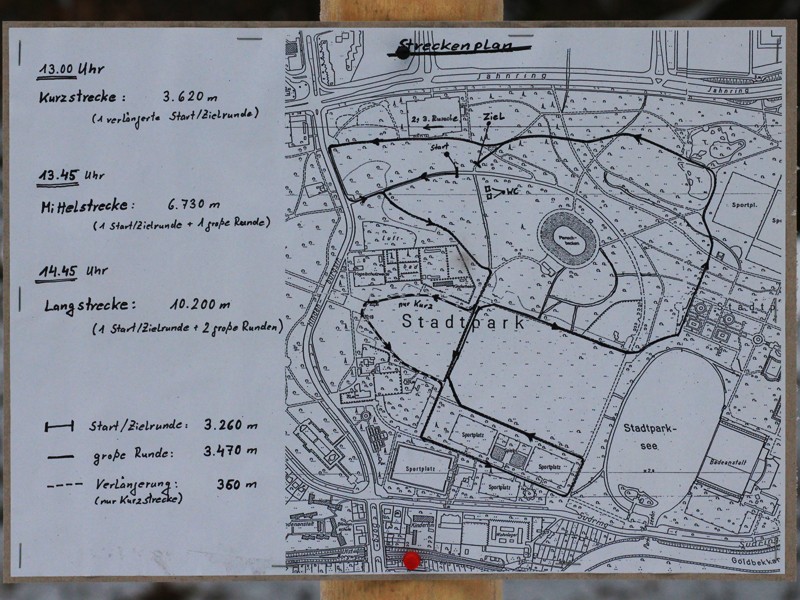 Streckenplan
13.00 Uhr
Kurzstrecke: 3.620 m
(1 verlängerte Start/Zielrunde)
13.45 Uhr
Mittelstrecke: 6.730 m
(1 Start/Zielrunde + 1 große Runde)
14.45 Uhr
Langstrecke: 10.200 m
(1 Start/Zielrunde + 2 große Runden)
Start/Zielrunde: 3.260 m
große Runde: 3.470 m
Verlängerung: 360 m
(nur Kurzstrecke)
Jahnring
Jahnring
2./3. Runde
Ziel
Start
WC
Sportpl.
nur Kurz
Stadtpark
Stadtpark-
see
Sportplatz
Sportplatz
Sportplatz
Sportplatz
Badeanstalt
Südring
Goldbekkan